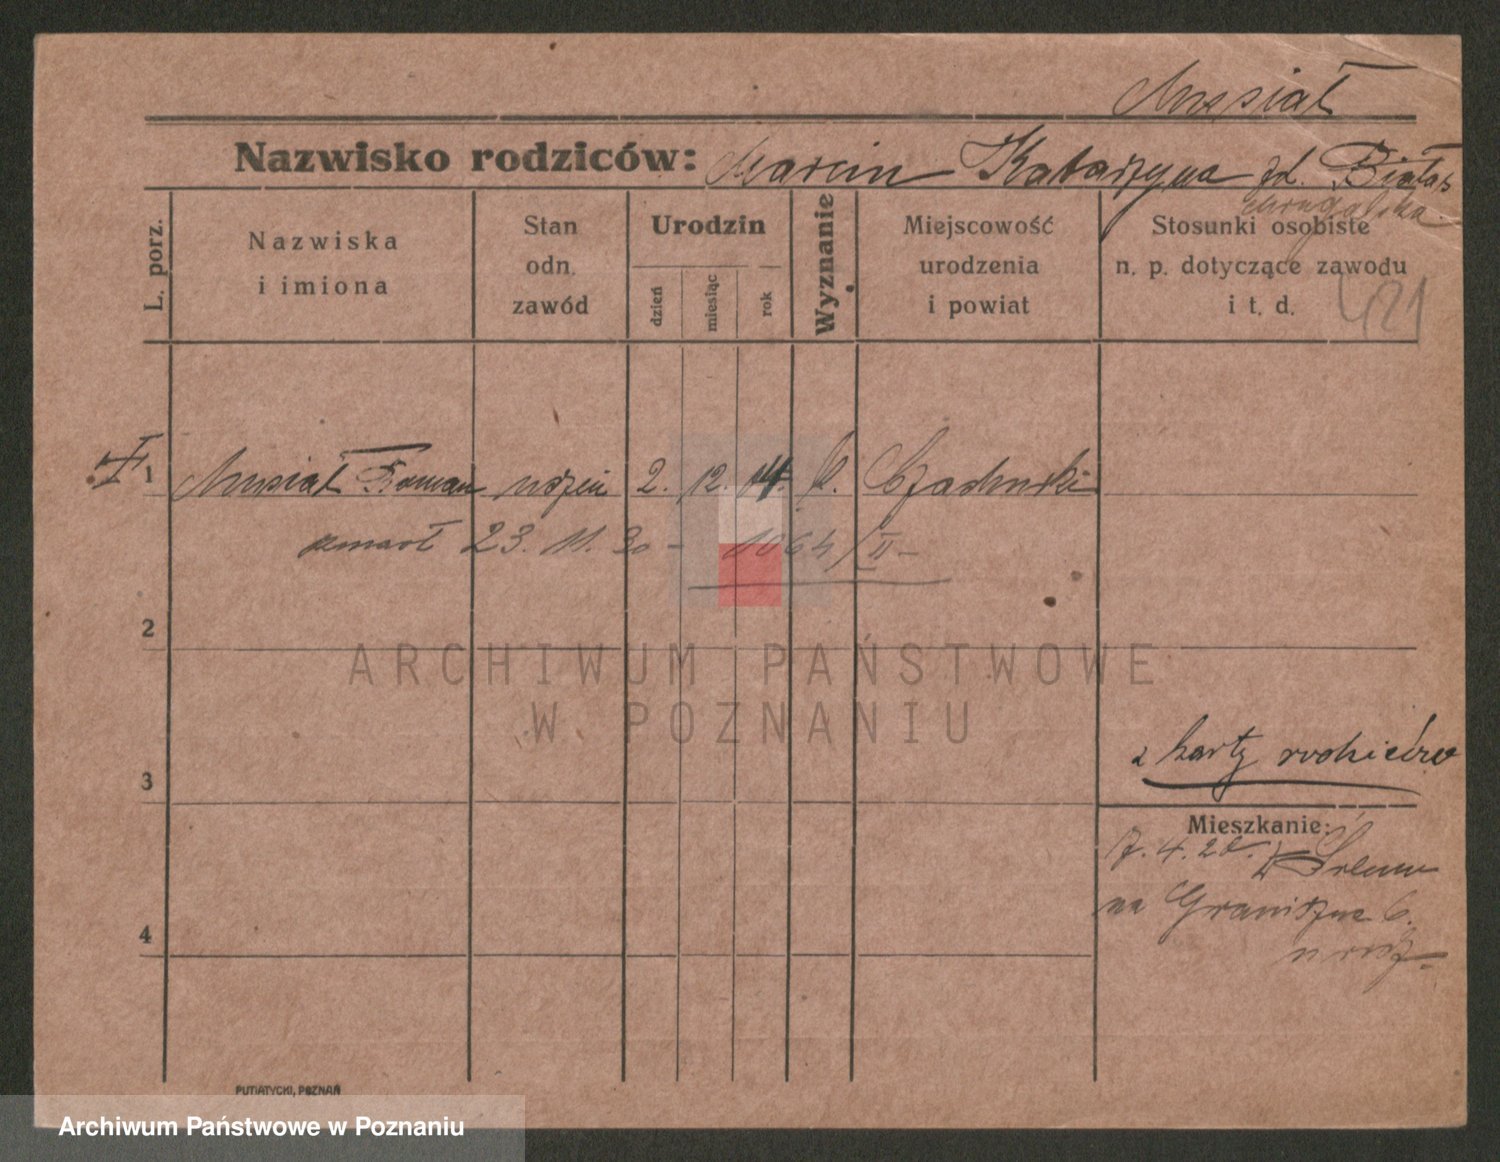 Musiał
Nazwisko rodziców: Marcin Katarzyna zd. Białas
L. porz.
Nazwiska
i imiona
Stan
odn.
zawód
Urodzin
dzień
miesiąc
rok
Wyznanie
Miejscowość
urodzenia
i powiat
Stosunki osobiste
n. p. dotyczące zawodu
i t. d.
421
1 Musiał Roman uczeń 2. 12. 14. k.
zmarł 23. 11. 30 - 1064/II -
2
3
4
z karty rodziców
Mieszkanie:
7. 4. 28. z Śremu
na Graniczne 6.
u rodz.
ARCHIWUM PAŃSTWOWE
W POZNANIU
PUTIATYCKI, POZNAŃ
Archiwum Państwowe w Poznaniu